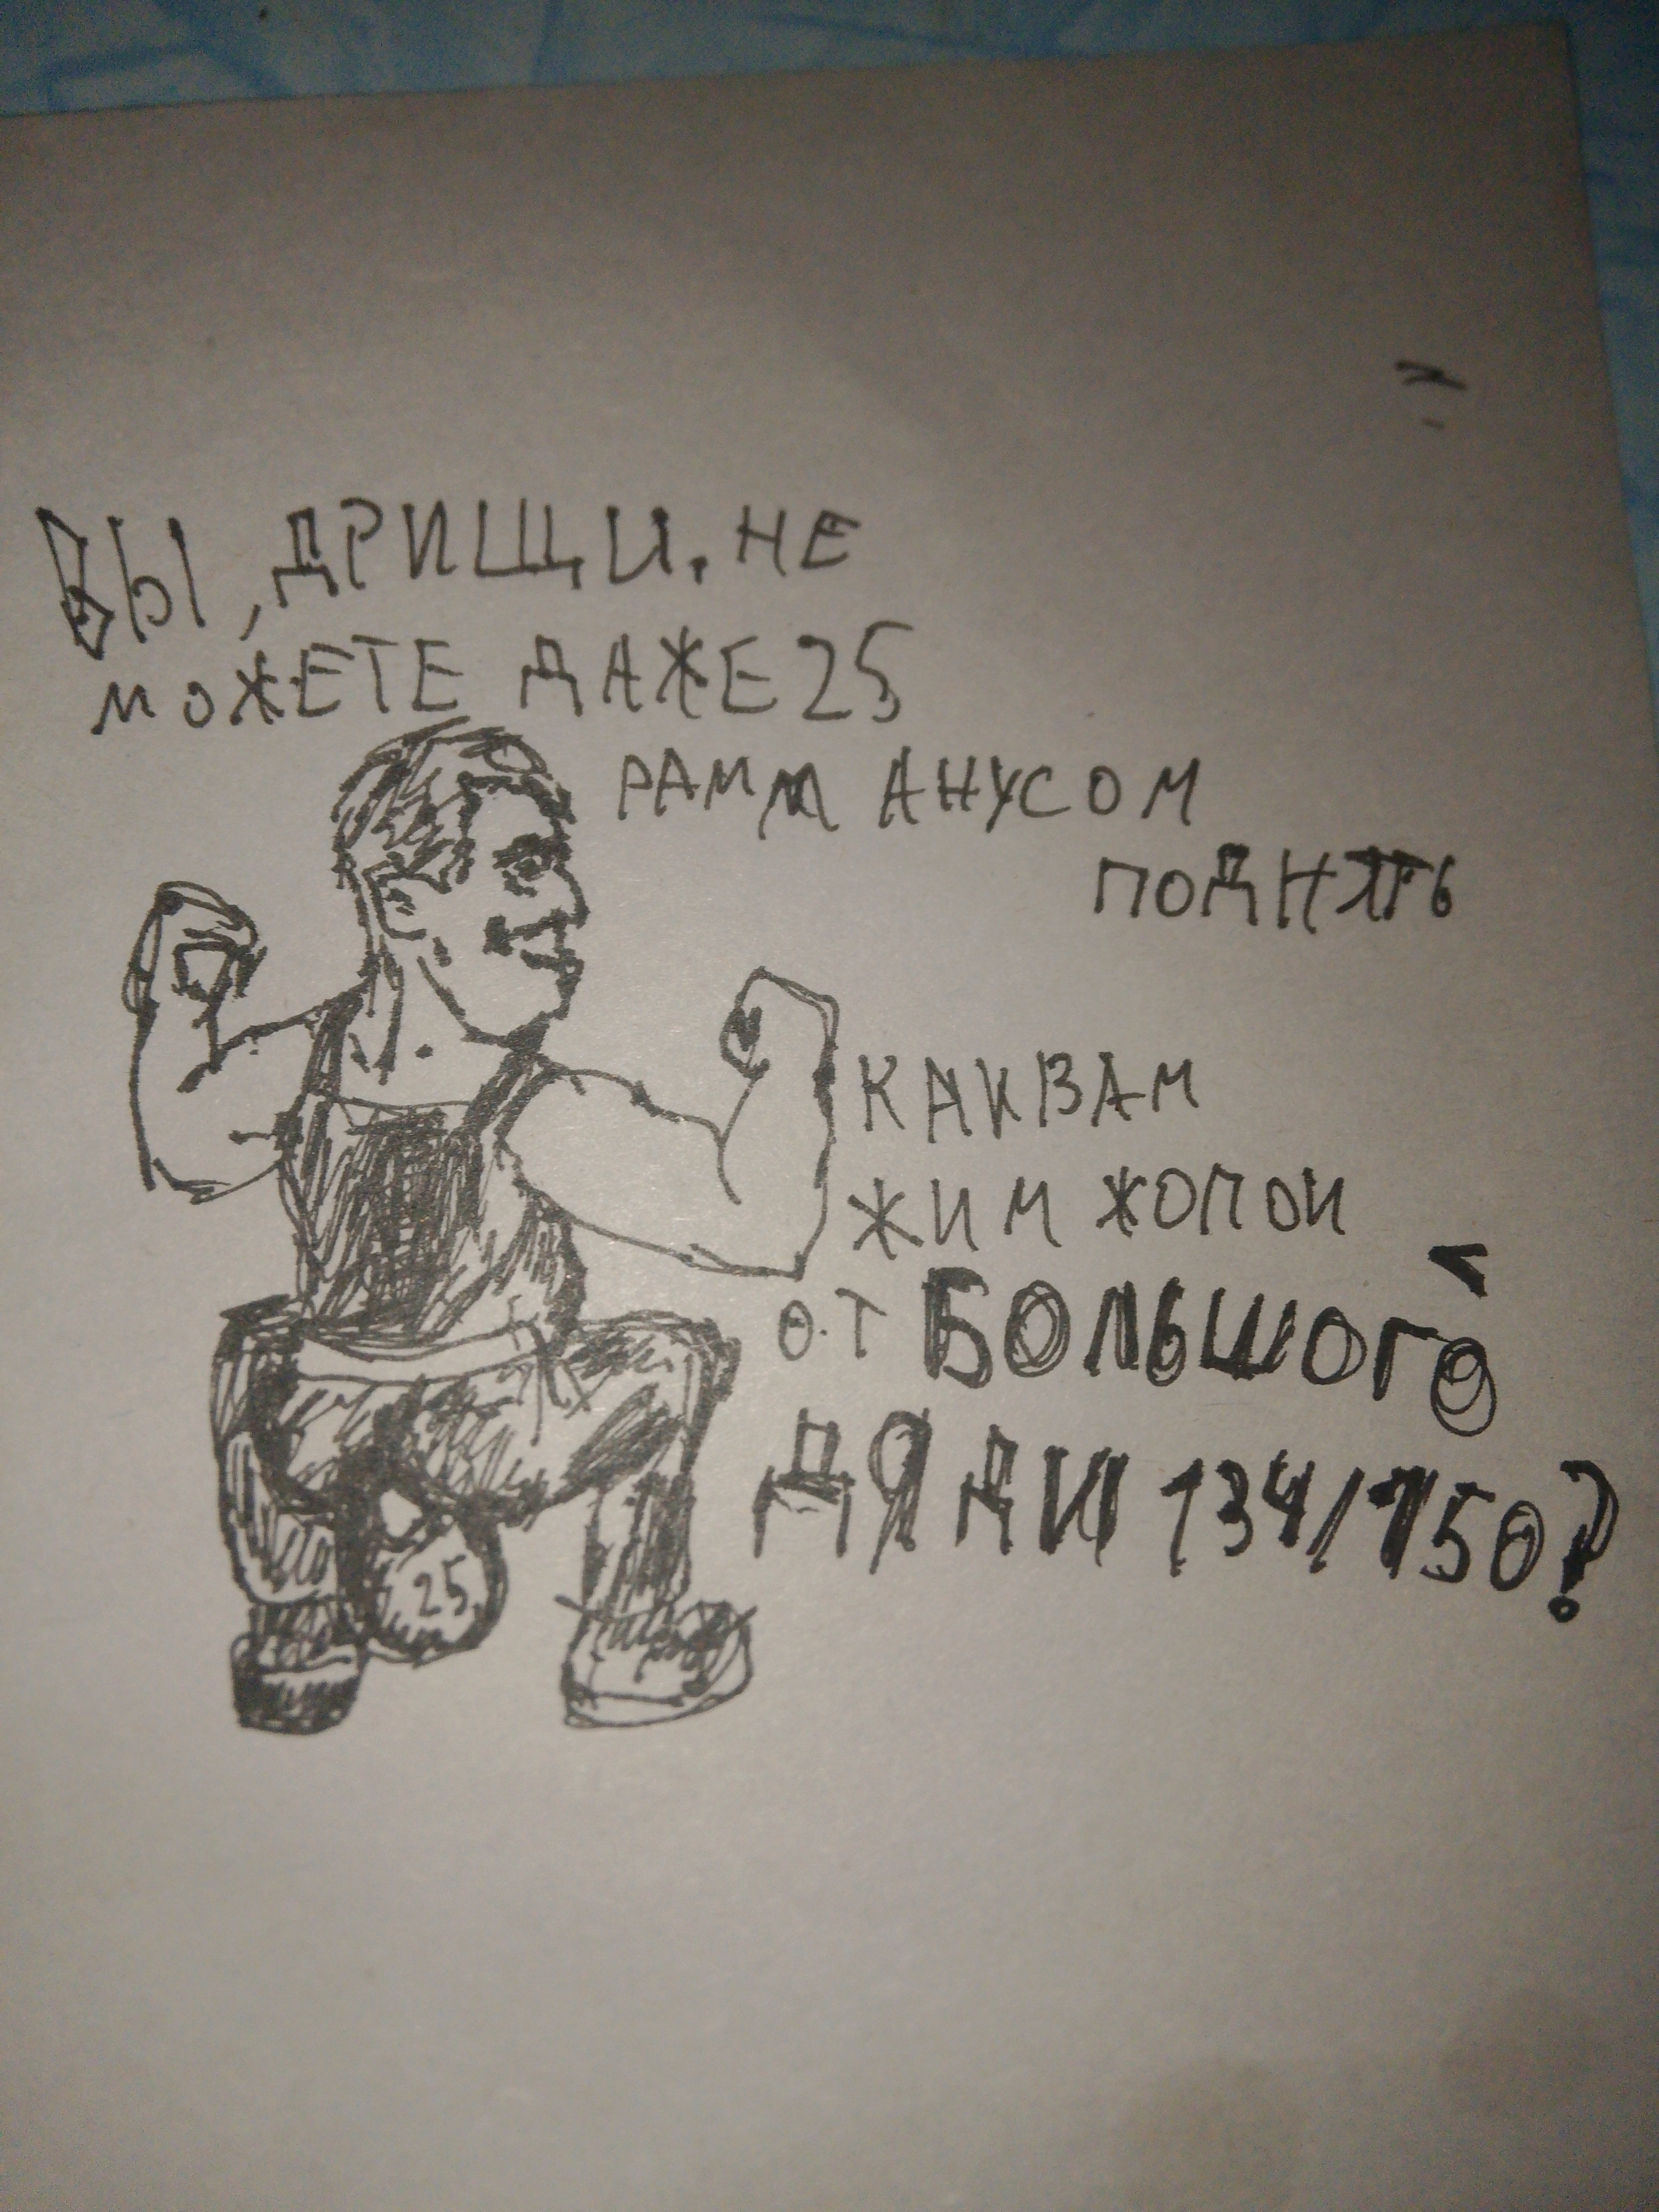 ВЫ, ДРИЩИ, НЕ
МОЖЕТЕ ДАЖЕ 25
РАММ АНУСОМ
ПОДНЯТЬ
КАК ВАМ
ЖИМ ЖОПОЙ
ОТ БОЛЬШОГО
ДЯДИ 134/150?
25